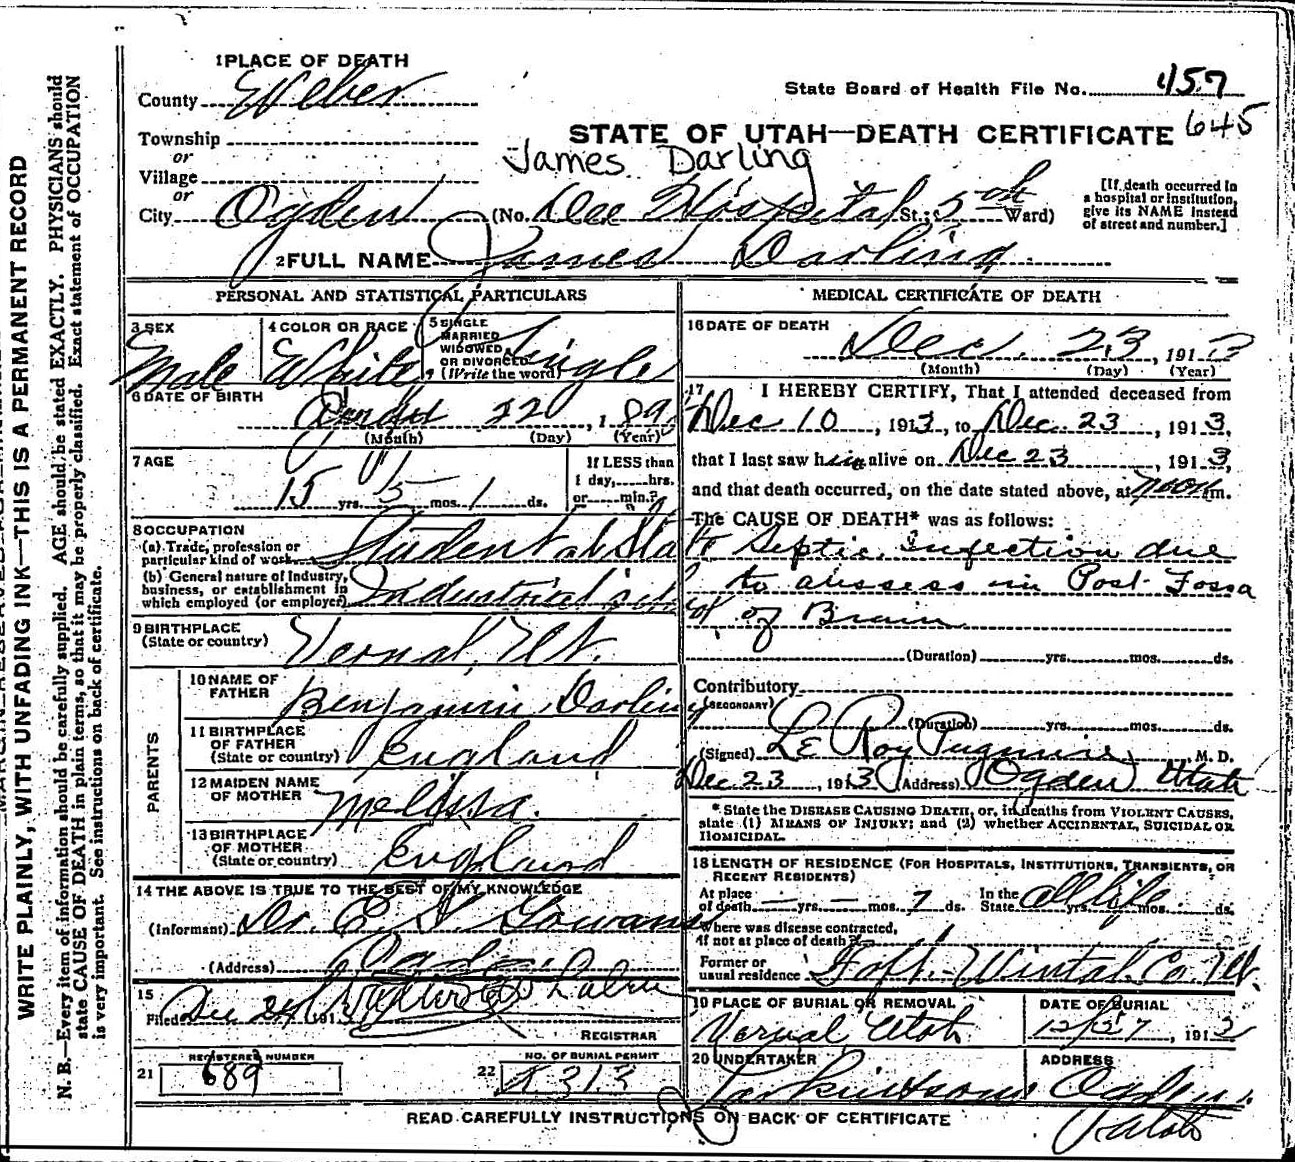 1 PLACE OF DEATH
County Weber
State Board of Health File No. 457
645
Township
or
Village
or
STATE OF UTAH—DEATH CERTIFICATE
James Darling
City Ogden (No. Dee Hospital St.; 5th Ward)
[If death occurred in a hospital or institution, give its NAME instead of street and number.]
2 FULL NAME James Darling
PERSONAL AND STATISTICAL PARTICULARS
3 SEX
Male
4 COLOR OR RACE
White
5 SINGLE MARRIED WIDOWED OR DIVORCED (Write the word)
Single
6 DATE OF BIRTH
22, 189
(Month) (Day) (Year)
7 AGE
15 yrs. 5 mos. 1 ds.
If LESS than 1 day, hrs. or min.?
8 OCCUPATION
(a) Trade, profession or particular kind of work Student at Sta
(b) General nature of Industry, business, or establishment in which employed (or employer) Industrial
9 BIRTHPLACE
(State or country) Vernal, Ut.
PARENTS
10 NAME OF FATHER Benjamin Darling
11 BIRTHPLACE OF FATHER (State or country) England
12 MAIDEN NAME OF MOTHER Melissa.
13 BIRTHPLACE OF MOTHER (State or country) England
14 THE ABOVE IS TRUE TO THE BEST OF MY KNOWLEDGE
(Informant) Dr. E. I. Gowans
(Address) Ogden
15
Filed Dec 24 191
REGISTRAR
21 REGISTERED NUMBER 689
22 NO. OF BURIAL PERMIT 313
MEDICAL CERTIFICATE OF DEATH
16 DATE OF DEATH
Dec. 23, 1913
(Month) (Day) (Year)
17 I HEREBY CERTIFY, That I attended deceased from
Dec 10, 1913, to Dec. 23, 1913,
that I last saw him alive on Dec 23, 1913,
and that death occurred, on the date stated above, at noon m.
The CAUSE OF DEATH* was as follows:
Septic Infection due
to abssess in Post Fossa
of Brain
(Duration) yrs. mos. ds.
Contributory
(SECONDARY)
(Duration) yrs. mos. ds.
(Signed) Le Roy Pugmire M. D.
Dec 23, 1913 (Address) Ogden Utah
*State the DISEASE CAUSING DEATH, or, in deaths from VIOLENT CAUSES, state (1) MEANS OF INJURY; and (2) whether ACCIDENTAL, SUICIDAL OR HOMICIDAL.
18 LENGTH OF RESIDENCE (FOR HOSPITALS, INSTITUTIONS, TRANSIENTS, OR RECENT RESIDENTS)
At place of death — yrs. — mos. 7 ds. In the State all life yrs. mos. ds.
Where was disease contracted, if not at place of death?
Former or usual residence Uintah Co. Ut.
19 PLACE OF BURIAL OR REMOVAL
Vernal Utah
DATE OF BURIAL
12/27, 191
20 UNDERTAKER
ADDRESS
Ogden, Utah
READ CAREFULLY INSTRUCTIONS ON BACK OF CERTIFICATE
WRITE PLAINLY, WITH UNFADING INK—THIS IS A PERMANENT RECORD
N. B.—Every item of information should be carefully supplied. AGE should be stated EXACTLY. PHYSICIANS should
state CAUSE OF DEATH in plain terms, so that it may be properly classified. Exact statement of OCCUPATION
is very important. See instructions on back of certificate.